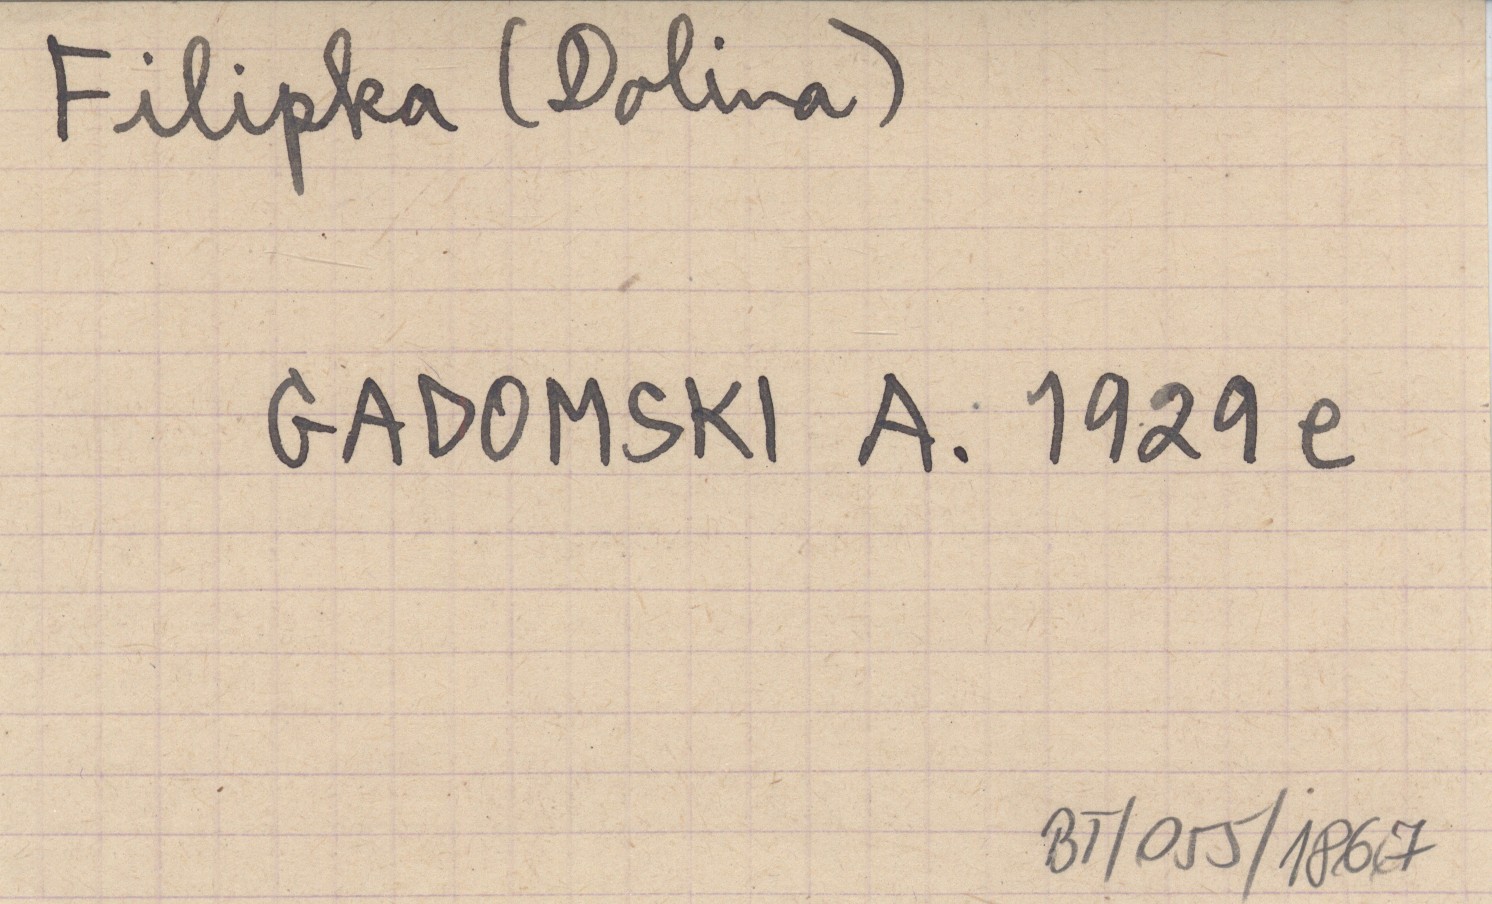 Filipka (Dolina)
GADOMSKI A. 1929 e
BT/055/1867